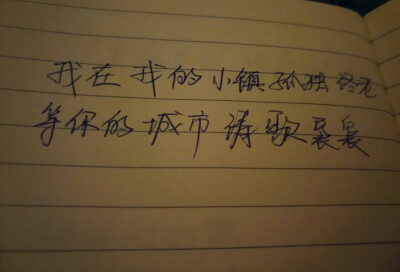 我在我的小镇孤独终老
等你的城市诗歌袅袅